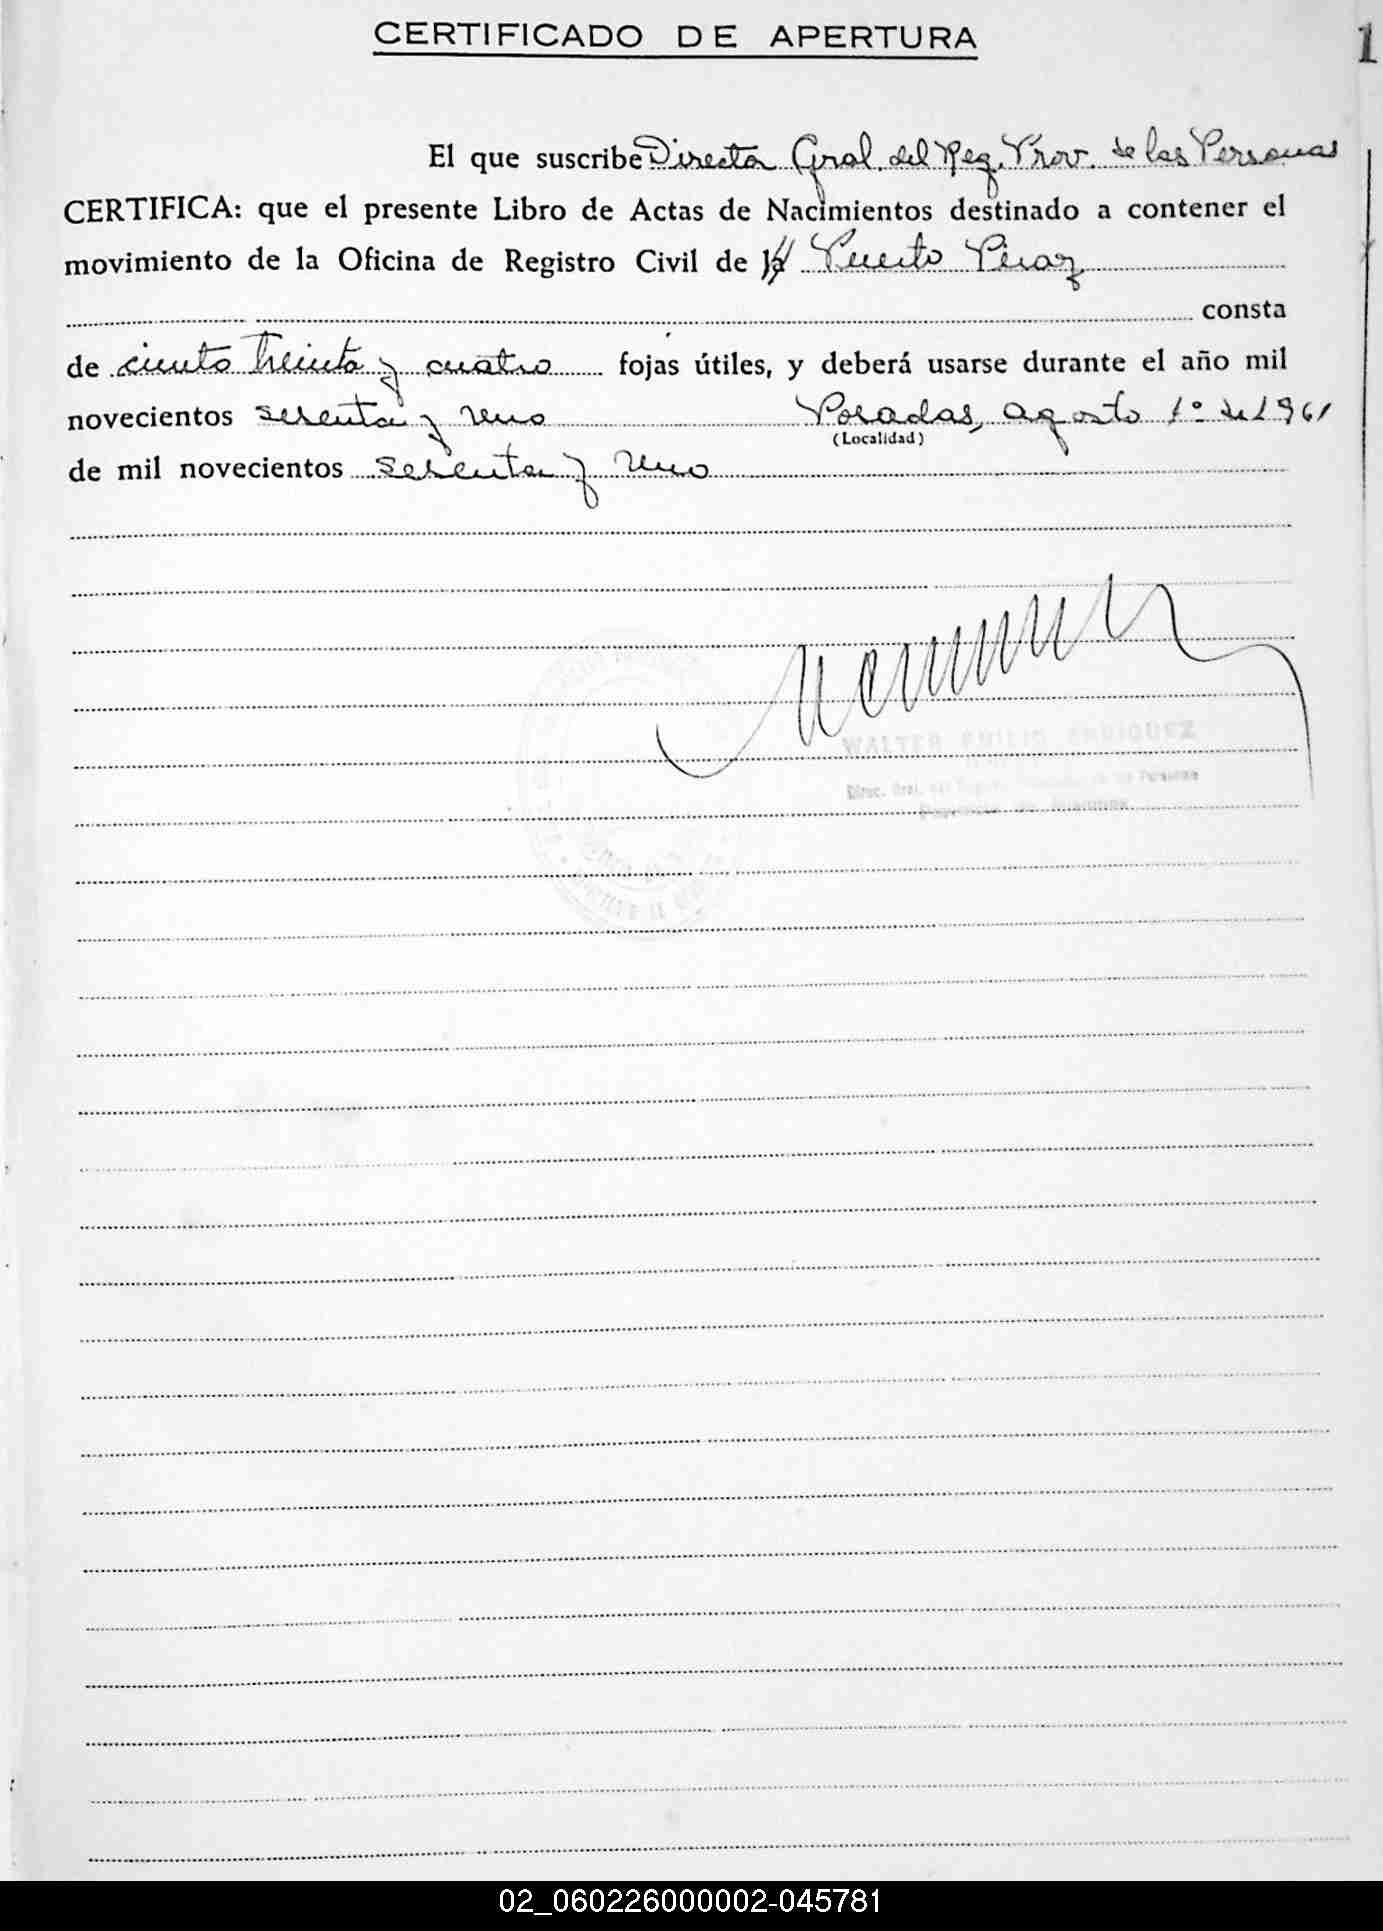 CERTIFICADO DE APERTURA
1
El que suscribe Director Gral. del Reg. Prov. de las Personas
CERTIFICA: que el presente Libro de Actas de Nacimientos destinado a contener el
movimiento de la Oficina de Registro Civil de la Puerto Piray
consta
de ciento treinta y cuatro fojas útiles, y deberá usarse durante el año mil
novecientos sesenta y uno Posadas, agosto 1º de 1961
(Localidad)
de mil novecientos sesenta y uno
WALTER EMILIO ENRIQUEZ
Direc. Gral. del de las Personas
02_060226000002-045781